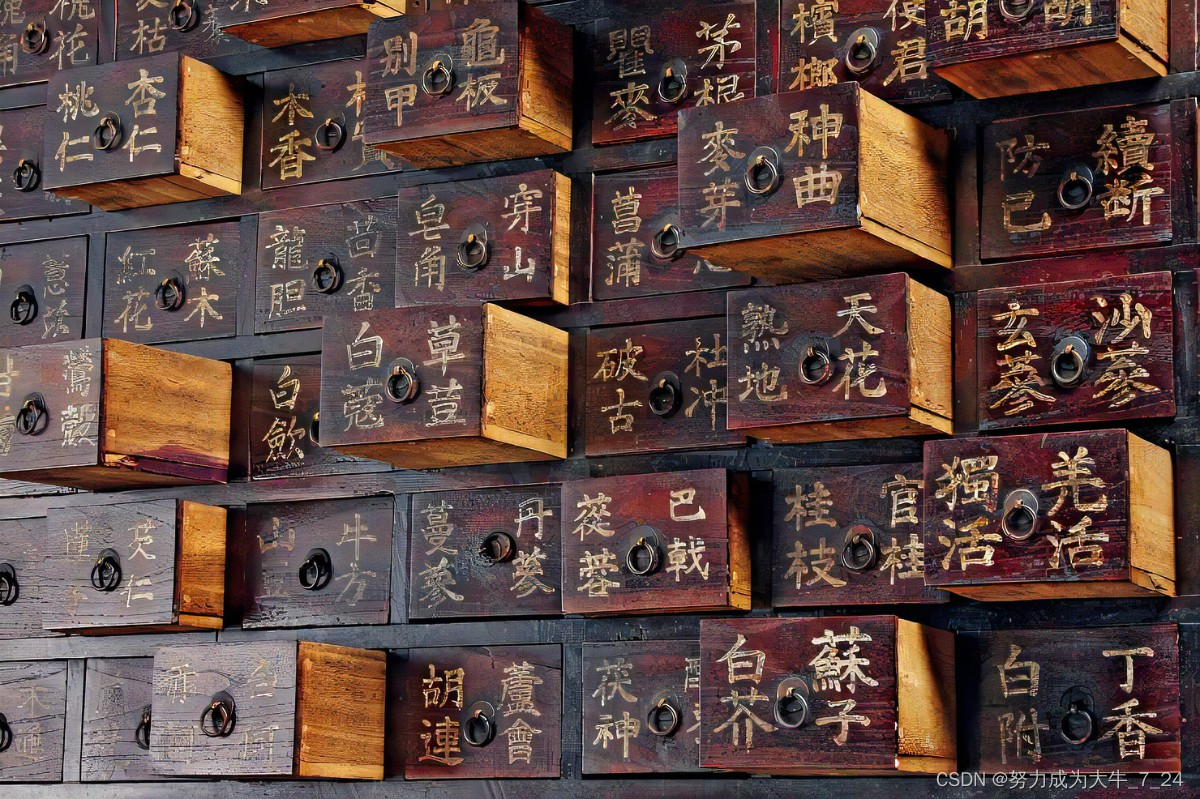 別甲
龜板
瞿麥
茅根
檳榔
使君
胡
胡
桃仁
杏仁
木香
麥芽
神曲
防己
續断
紅花
蘇木
龍胆
茴香
皂角
穿山
菖蒲
白歛
白蔻
草荳
破古
杜冲
熟地
天花
玄蔘
沙蔘
仁
山
牛方
蔓蔘
丹蔘
蓯蓉
巴戟
桂枝
官桂
獨活
羌活
胡連
蘆會
茯神
白芥
蘇子
白附
丁香
CSDN @努力成为大牛_7_24